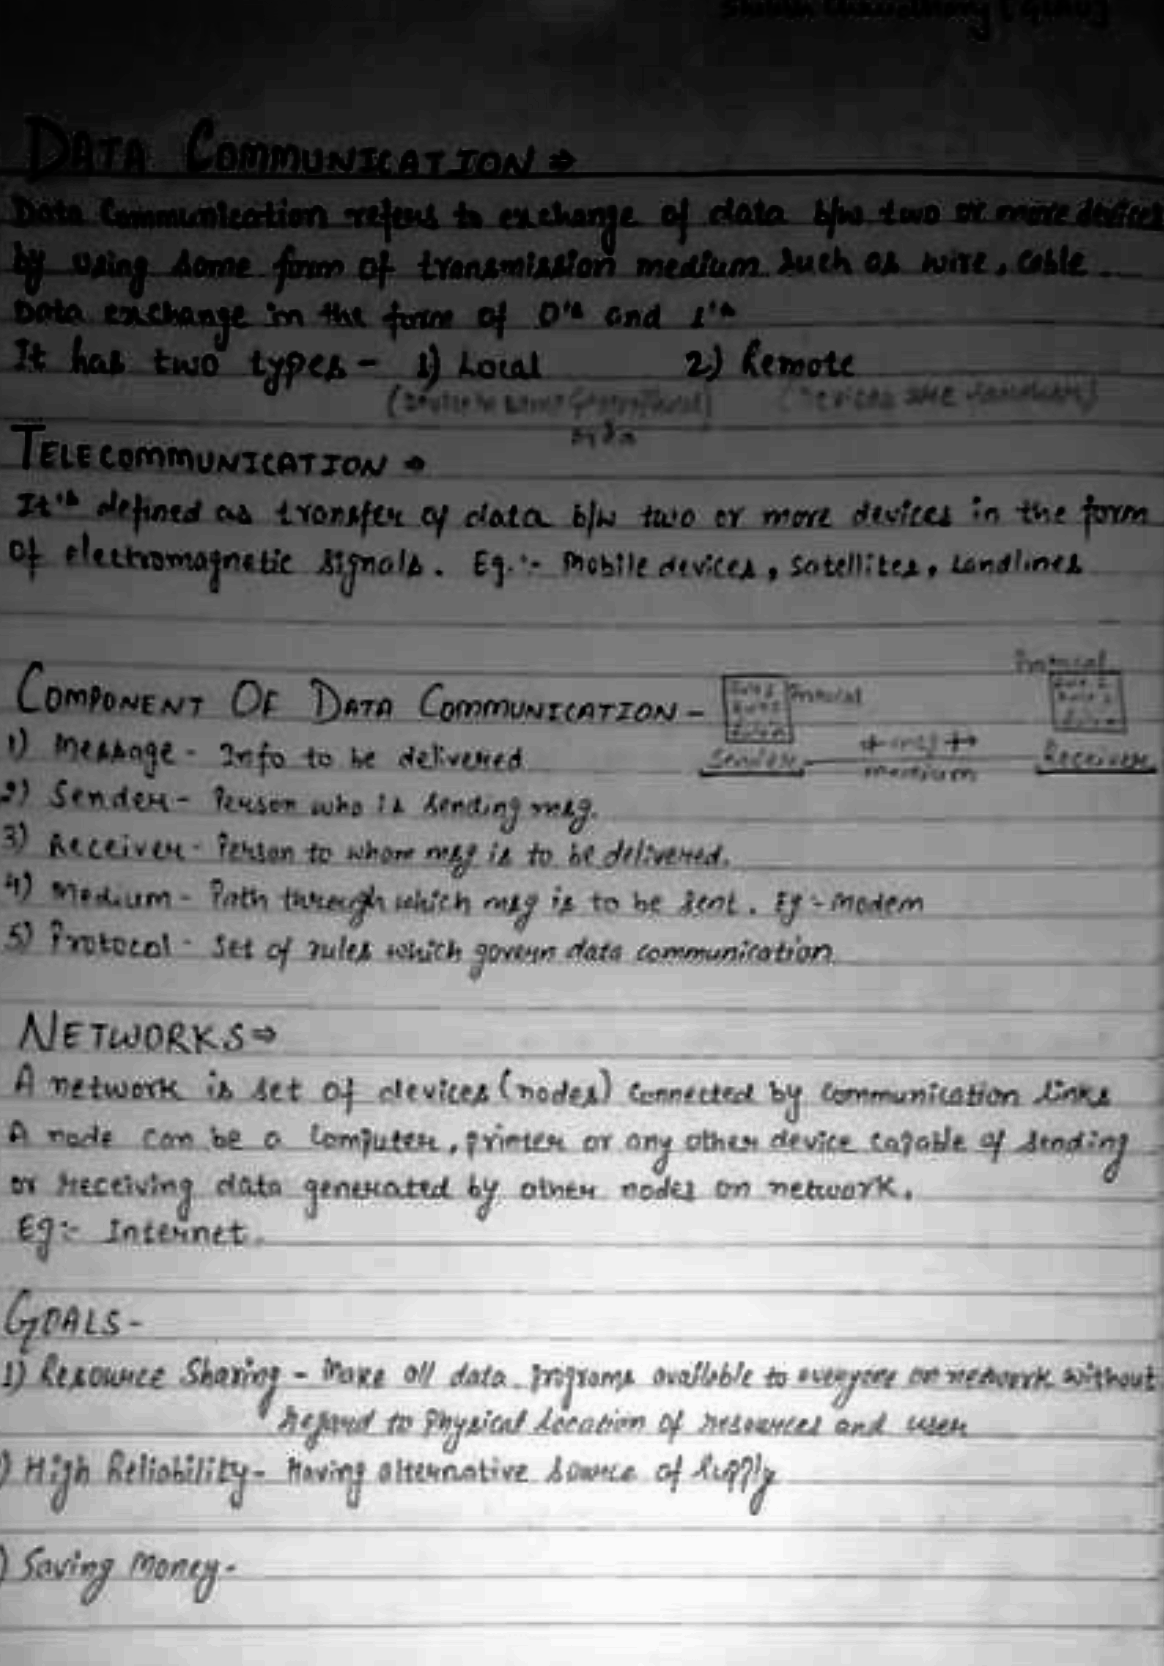 Chaudhary (GLAU)
DATA COMMUNICATION ⇒
Data Communication refers to exchange of data b/w two or more devices
by using some form of transmission medium such as wire, cable.
Data exchange in the form of 0's and 1's
It has two types - 1) Local 2) Remote
(Device in same Geographical) (Devices are
TELECOMMUNICATION →
It's defined as transfer of data b/w two or more devices in the form
of electromagnetic signals. Eg. :- Mobile devices, satellites, Landlines
COMPONENT OF DATA COMMUNICATION -
Protocol
Rule 1 Protocol
Rule 2
Rule 1
Rule 2
1) Message - Info to be delivered
Sender msg Receiver
medium
2) Sender - Person who is sending msg.
3) Receiver - Person to whom msg is to be delivered.
4) Medium - Path through which msg is to be sent. Eg :- modem
5) Protocol - Set of rules which govern data communication.
NETWORKS ⇒
A network is set of devices (nodes) connected by communication links
A node can be a computer, printer or any other device capable of sending
or receiving data generated by other nodes on network.
Eg :- Internet.
GOALS -
1) Resource Sharing - Make all data programs available to everyone on network without
regard to Physical Location of resources and user
) High Reliability - Having alternative source of supply
) Saving Money -